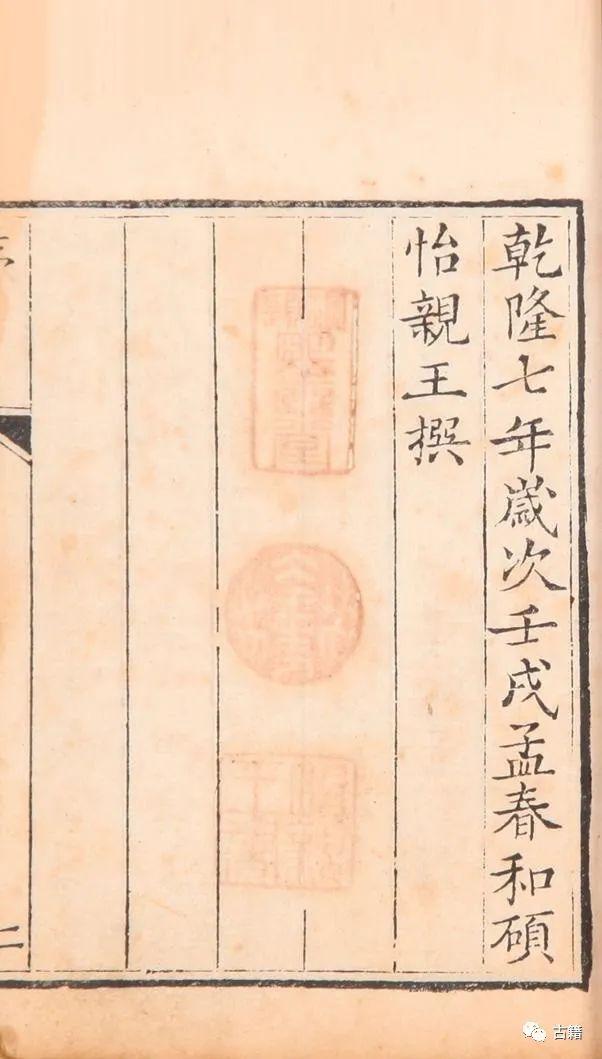 乾隆七年歲次壬戌孟春和碩
怡親王撰
二
古籍